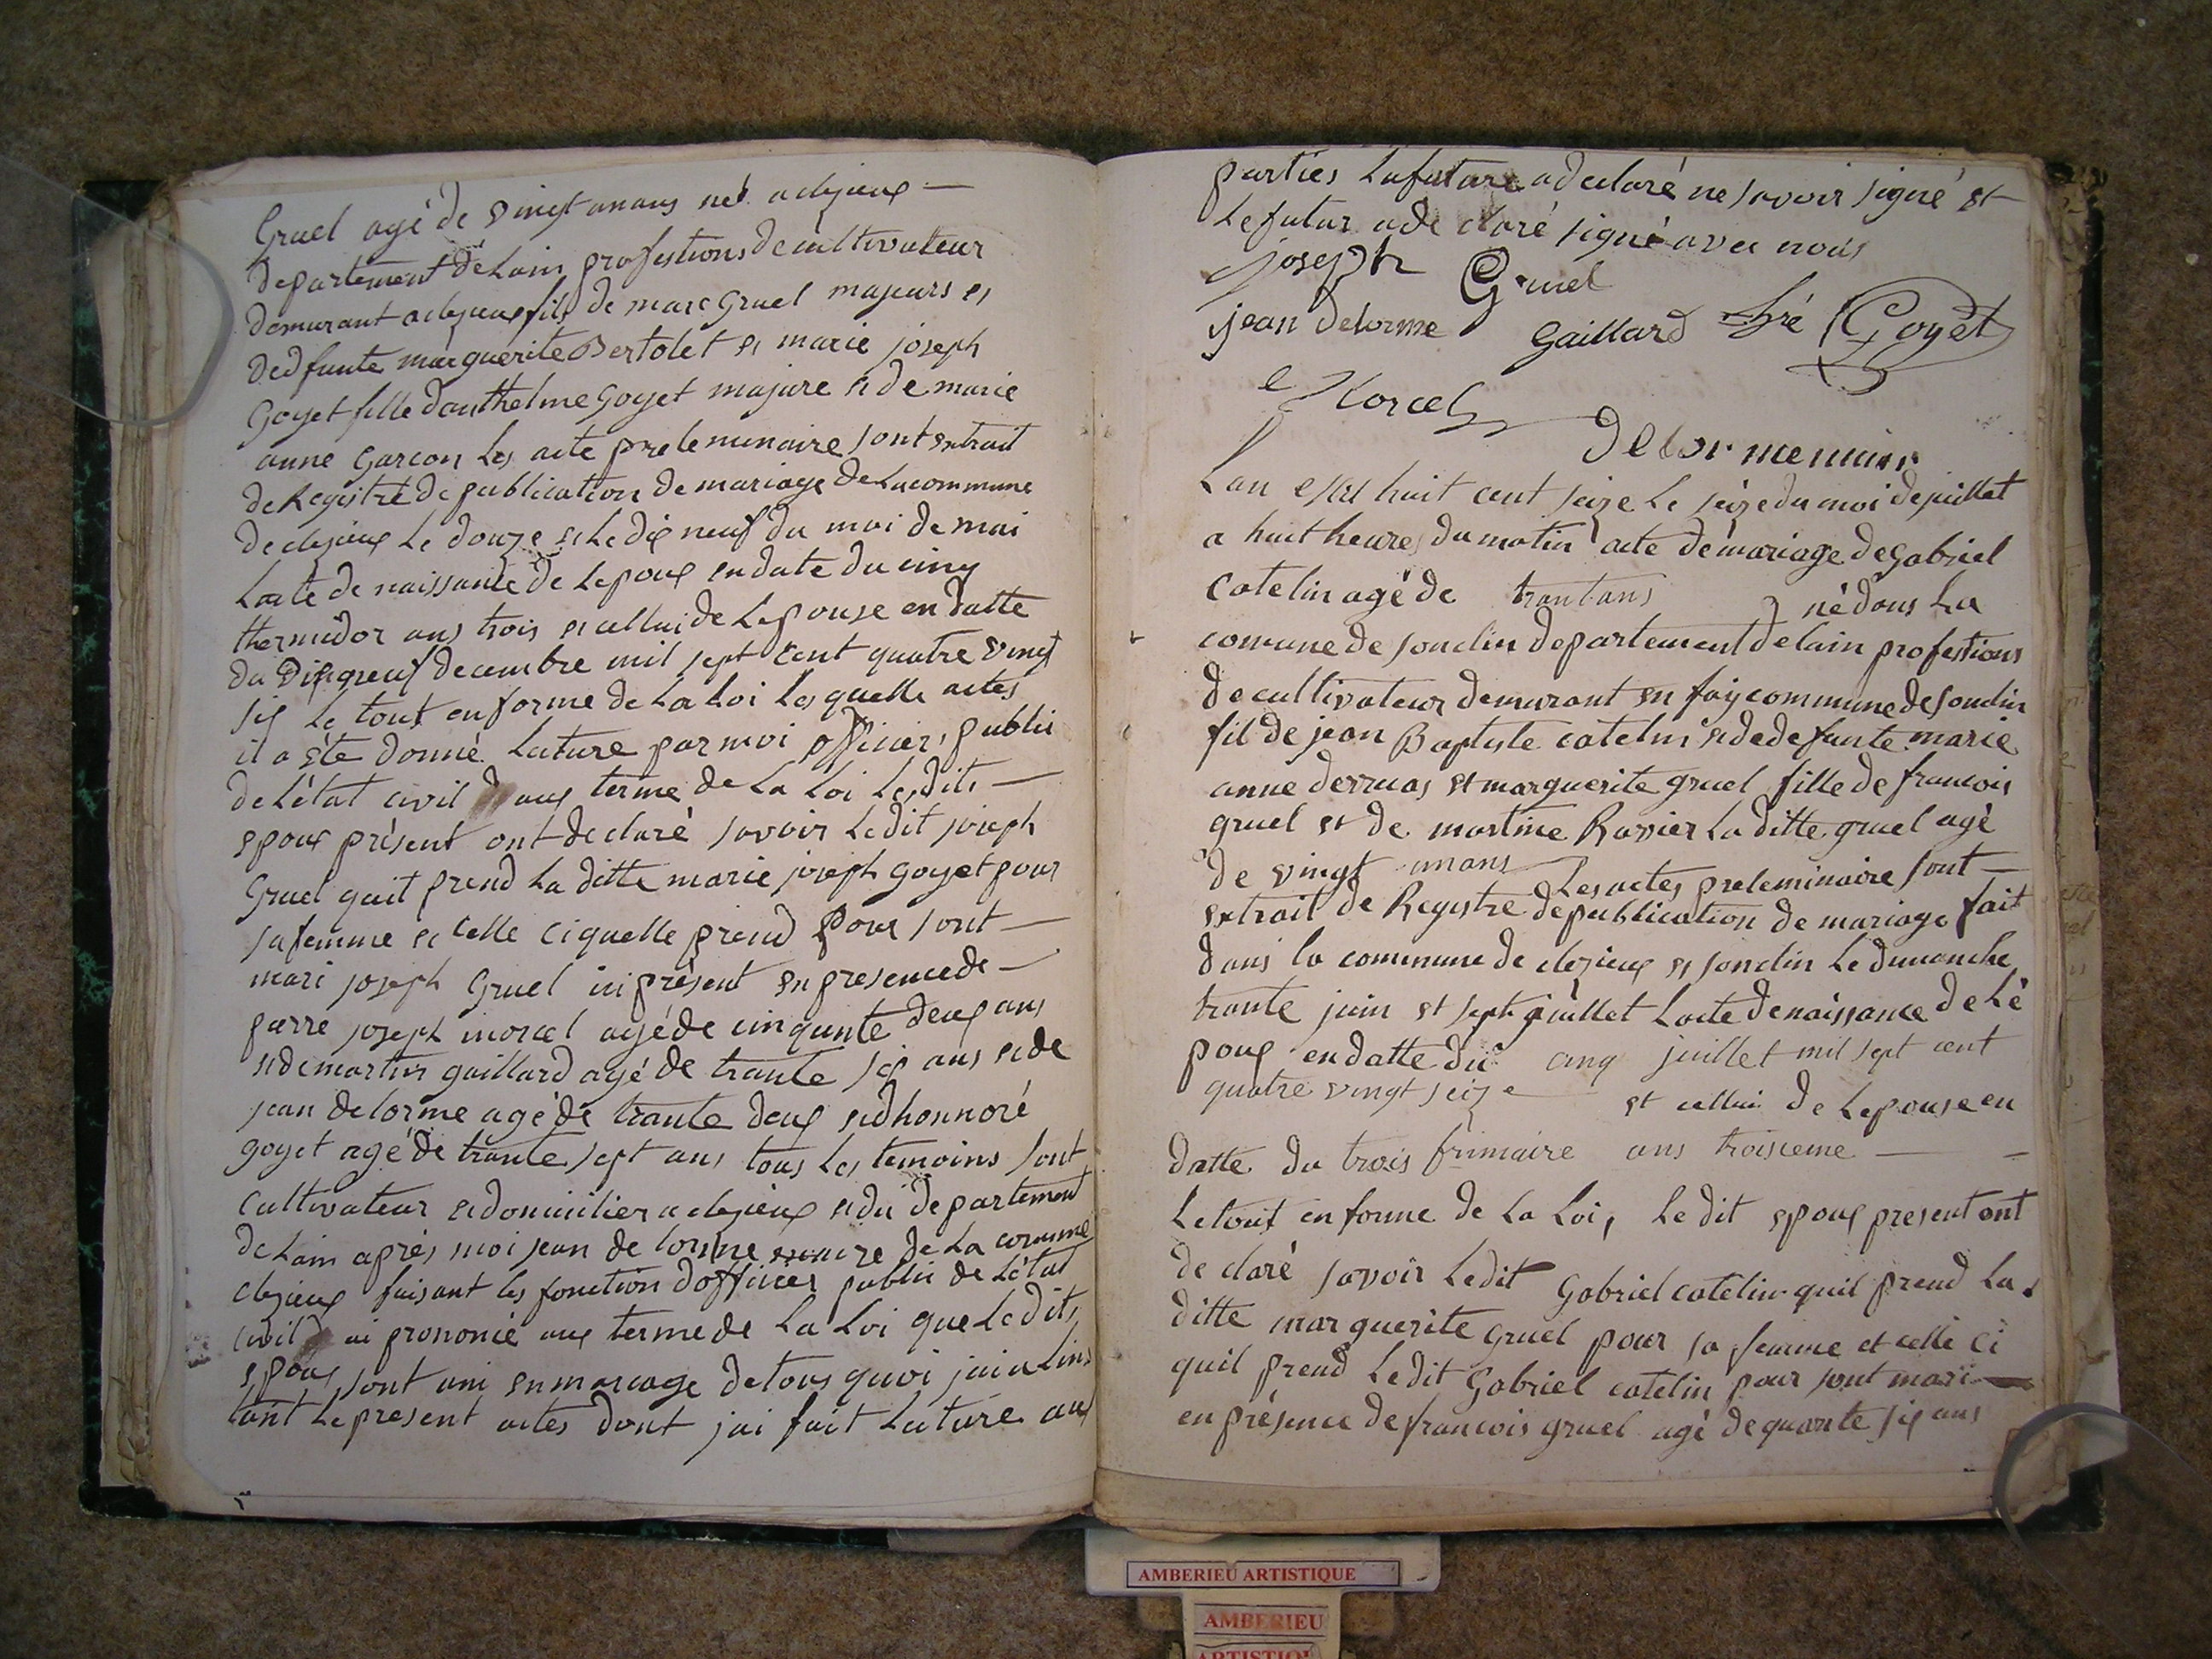 Gruel agé de vingt un ans né a clezieux —
departement de Lain profestions de cultivateur
demurant a clezieux fils de marc Gruel majeurs et
dedfunte marguerite Bertolet et marie joseph
Goyet fille danthelme Goyet majure et de marie
anne Garcon Les acte preleminaire sont extrait
de Registre de publication de mariage de La commune
de clezieux Le douze et Le dix neuf du moi de mai
Lacte de naissance de Lepoux en date du cinq
thermidor ans trois et cellui de Lepouse en datte
du dix neuf decembre mil sept cent quatre vingt
six Le tout en forme de La Loi Les quelle actes
il a été donné Lecture par moi officier public
de Létat civil aux terme de La Loi Les dits —
epoux présent ont declaré savoir Ledit joseph
Gruel quit prend La ditte marie joseph Goyet pour
sa femme et celle ci quelle prend pour sont —
mari joseph Gruel ici présent en presence de —
pierre joseph morcel agé de cinquante deux ans
et de martin gaillard agé de trante six ans et de
jean delorme agé de trante deux et dhonnoré
goyet agé de trante sept ans tous Les temoins sont
cultivateur et domicilier a clezieux et du departement
de Lain aprés moi jean de lorme maire de La comune
clezieux faisant les fonction dofficier public de Létat
civil ai prononcé aux terme de La Loi que Le dits
epoux sont uni en mariage de tous quoi jai a Lins
tant Le present actes dont jai fait Lecture aux
parties La future a declaré ne savoir signé et
Le futur a de claré signé avec nous
joseph Gruel
jean delorme Gaillard hré Goyet
Morcel
delorme maire
Lan mil huit cent seize Le seize du moi de juillet
a huit heures du matin acte de mariage de Gabriel
catelin agé de trant ans né dans La
comune de sonclin departement de lain profestions
de cultivateur demurant en fay commune de sonclin
fil de jean Baptiste catelin et de defunte marie
anne derruas et marguerite gruel fille de francois
gruel et de martine Ravier La ditte gruel agé
de vingt un ans Les actes preleminaire sont —
extrait de Registre de publication de mariage fait
dans la commune de clezieux et sonclin Le dimanche
trante juin et sept juillet Lacte de naissance de Lé
poux en datte du cinq juillet mil sept cent
quatre vingt seize et cellui de Lepouse en
datte du trois frimaire ans troisieme —
Le tout en forme de La Loi, Le dit epoux present ont
de claré savoir Ledit Gabriel catelin quil prend La
ditte marguerite gruel pour sa femme et celle ci
quil prend Ledit Gabriel catelin pour sont mari —
en présence de francois gruel agé de quarante six ans
AMBERIEU ARTISTIQUE
AMBERIEU
ARTISTIQUE